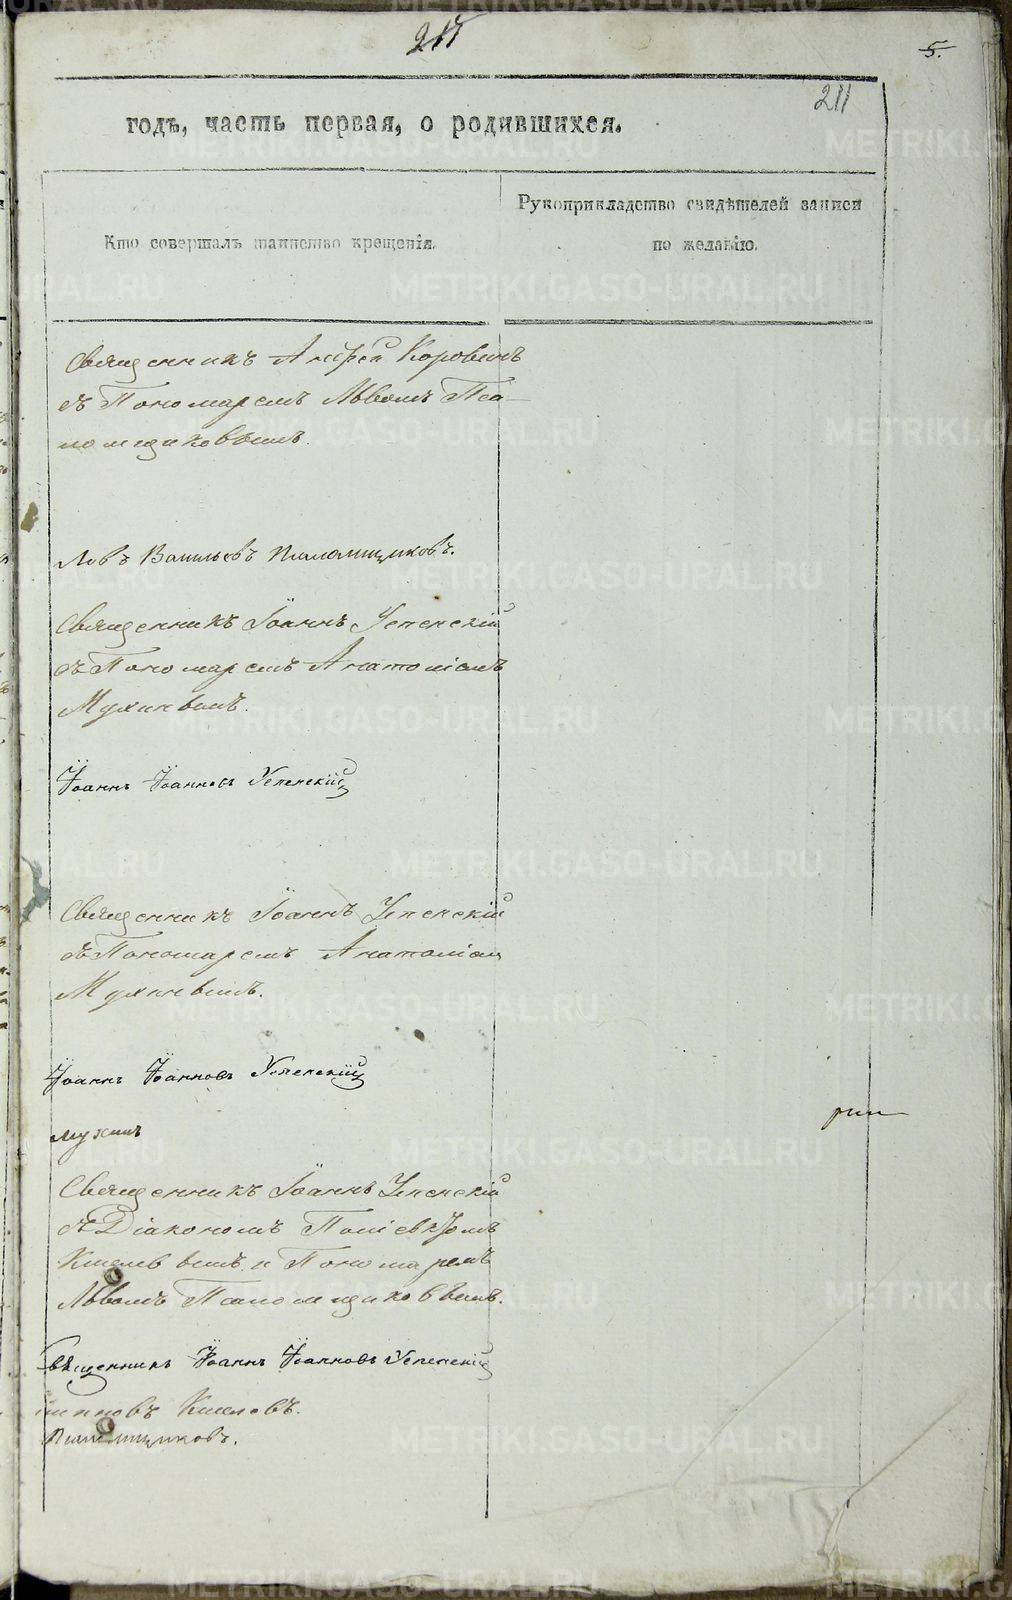 211
5.
211
годъ, часть первая, о родившихся.
Кто совершалъ таинство крещенія.
Рукоприкладство свидѣтелей записи
по желанію.
Священникъ Андрей Коровинъ
съ Пономаремъ Львомъ Пса-
ломщиковымъ.
Левъ Васильевъ Псаломщиковъ.
Священникъ Іоаннъ Успенскій
съ Пономаремъ Анатоліемъ
Мухинымъ.
Іоаннъ Іоанновъ Успенскій
Священникъ Іоаннъ Успенскій
съ Пономаремъ Анатоліем
Мухинымъ.
Іоаннъ Іоанновъ Успенскій
Мухинъ
Священникъ Іоаннъ Успенскій
съ Діакономъ
и Пономаремъ
Львомъ Псаломщиковымъ.
Священникъ Іоаннъ Іоанновъ Успенскій
Псаломщиковъ.
METRIKI.GASO-URAL.RU